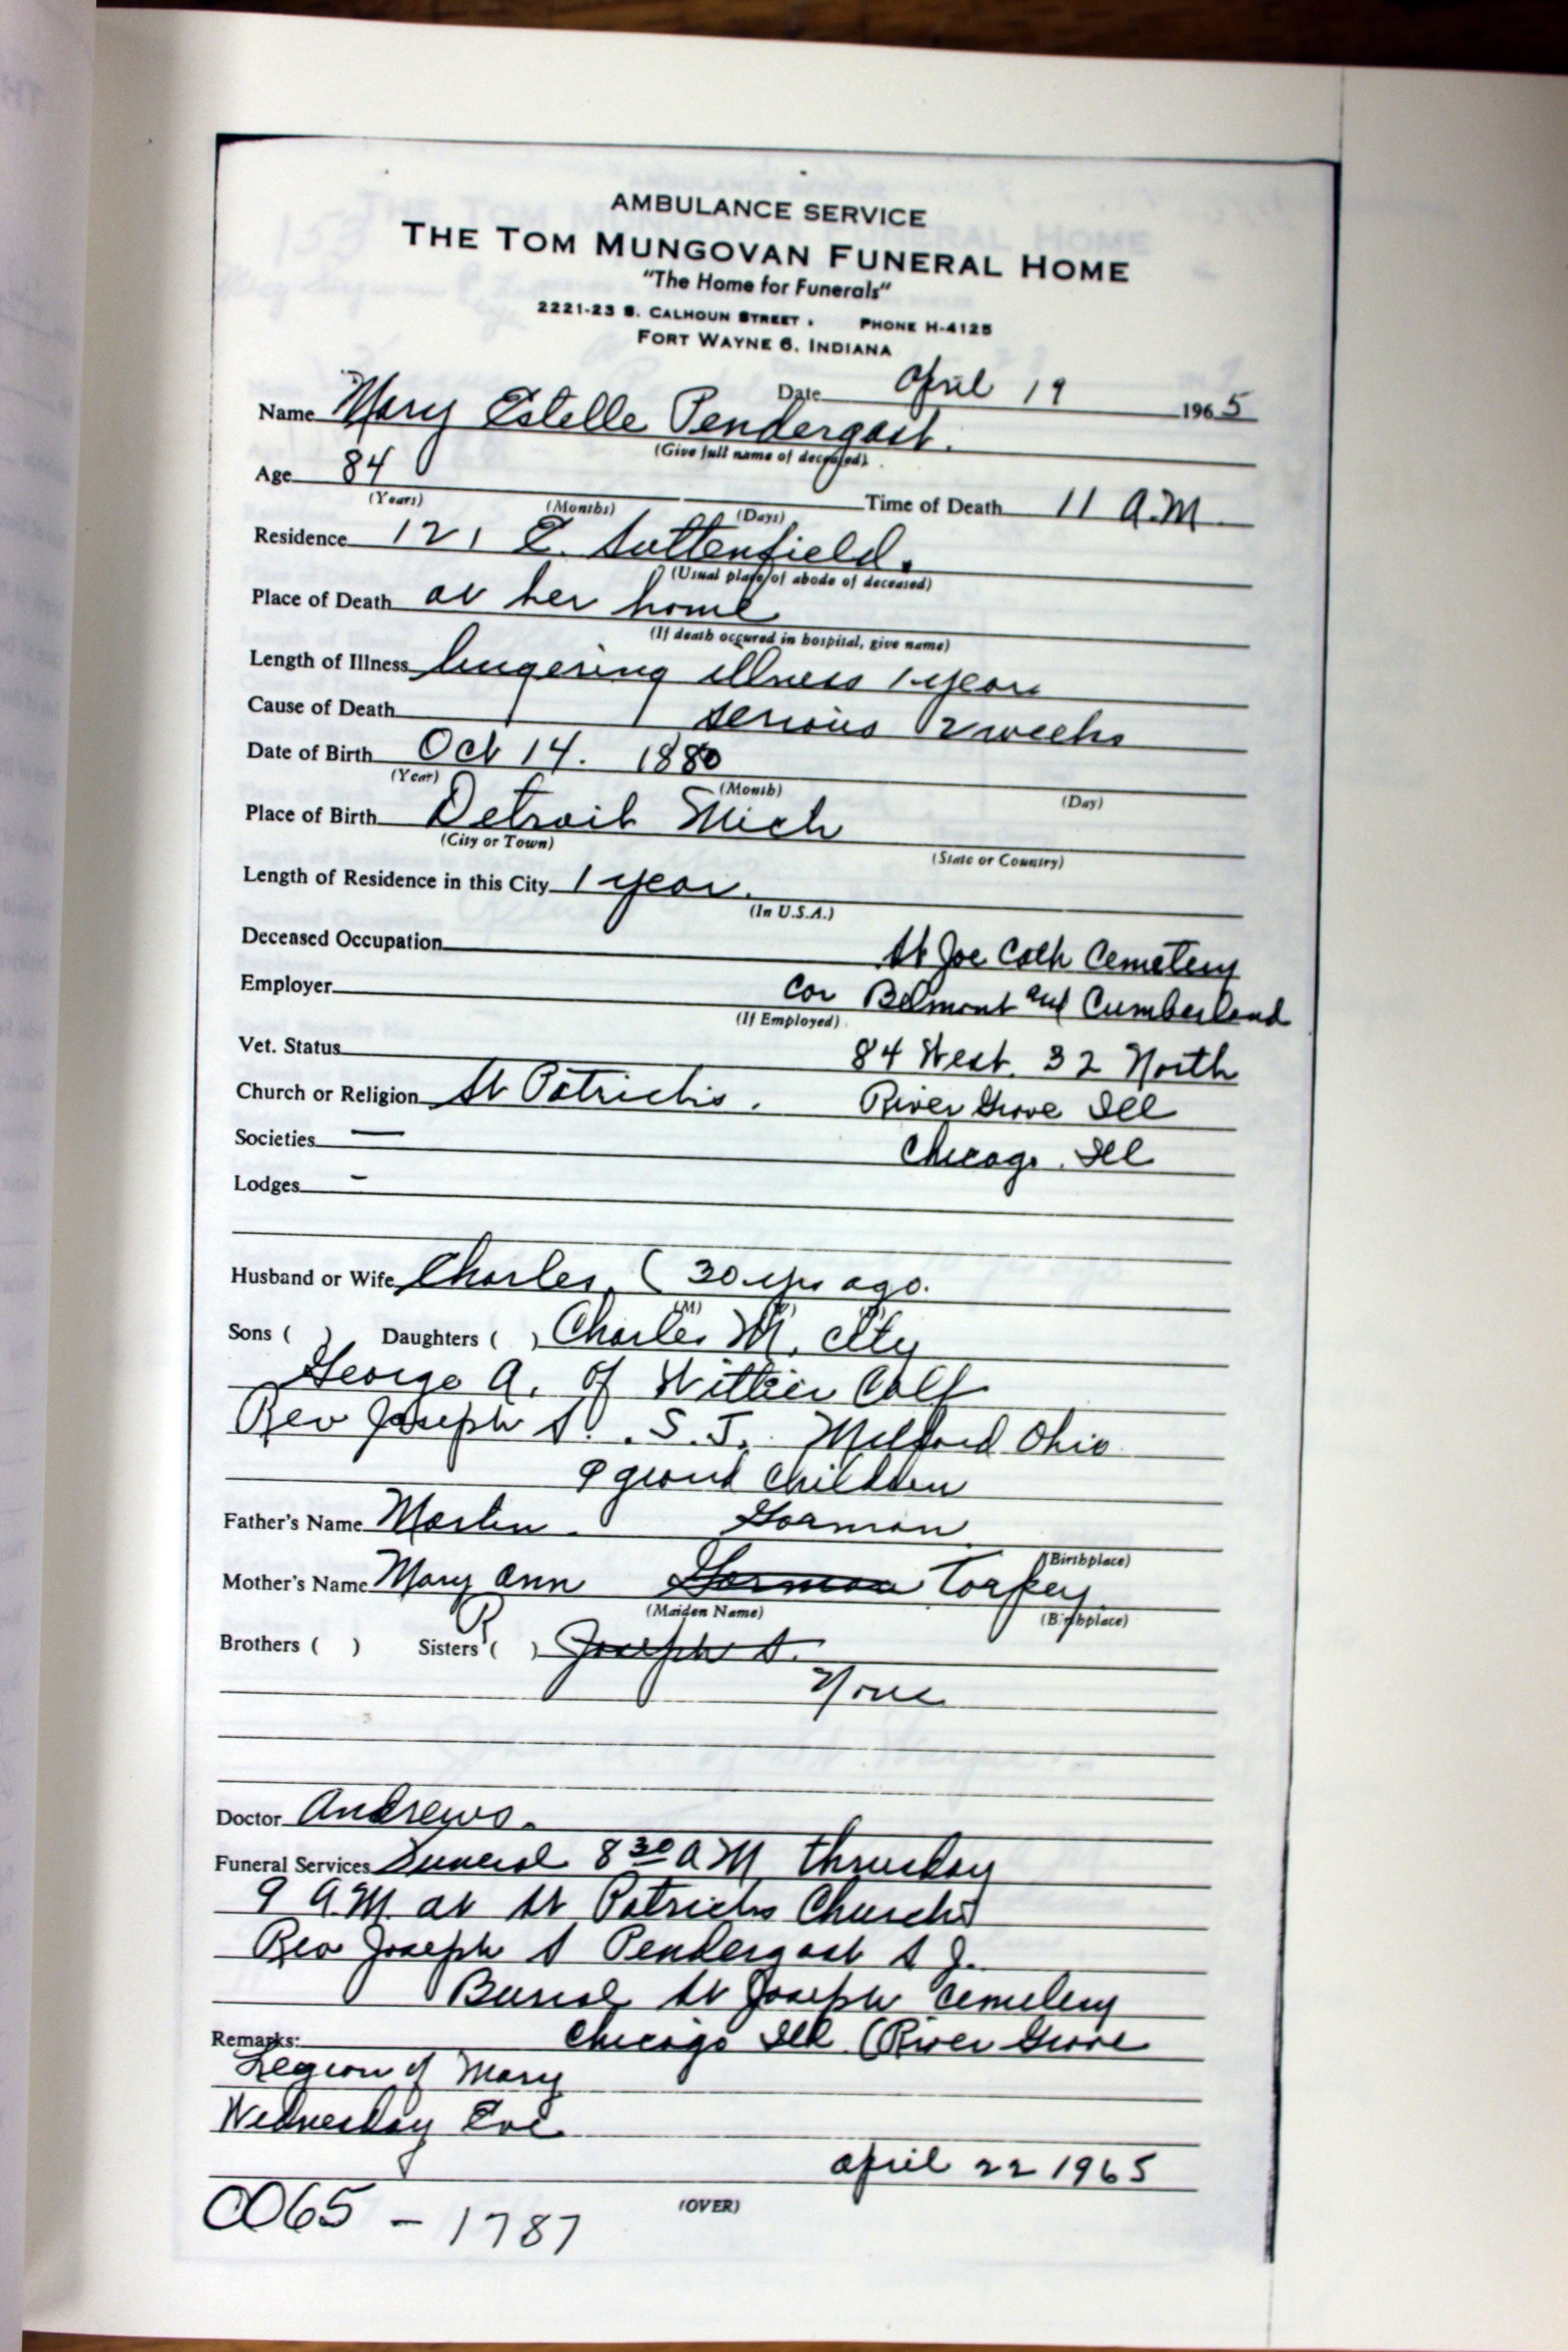 AMBULANCE SERVICE
THE TOM MUNGOVAN FUNERAL HOME
"The Home for Funerals"
2221-23 S. CALHOUN STREET . PHONE H-4125
FORT WAYNE 6, INDIANA
Date April 19 1965
Name Mary Estelle Pendergast.
(Give full name of deceased)
Age 84 Time of Death 11 A.M.
(Years) (Months) (Days)
Residence 121 E. Suttenfield.
(Usual place of abode of deceased)
Place of Death at her home
(If death occured in hospital, give name)
Length of Illness lingering illness 1 year
Cause of Death serious 2 weeks
Date of Birth Oct 14. 1880
(Year) (Month) (Day)
Place of Birth Detroit Mich
(City or Town) (State or Country)
Length of Residence in this City 1 year.
(In U.S.A.)
Deceased Occupation St Joe Cath Cemetery
Employer Cor Belmont and Cumberland
(If Employed)
Vet. Status 84 West. 32 North
Church or Religion St Patricks. River Grove Ill
Societies — Chicago. Ill
Lodges -
Husband or Wife Charles. ( 30 yrs ago.
(M)
Sons ( ) Daughters ( ) Charles M. city
George A. of Wittier Calf
Rev Joseph S. . S.J. Milford Ohio
9 grand children
Father's Name Martin. Gorman
(Birthplace)
Mother's Name Mary Ann Gorman Torpey
(Maiden Name) (Birthplace)
Brothers ( ) Sisters ( ) Joseph S.
None
Doctor Andrews.
Funeral Services Funeral 8 30 A M Thrusday
9 A.M. at St Patricks Church
Rev Joseph S Pendergast S J.
Burial St Joseph Cemetery
Remarks: Chicago Ill (River Grove
Legion of Mary
Wednesday Eve
April 22 1965
(OVER)
0065 - 1787